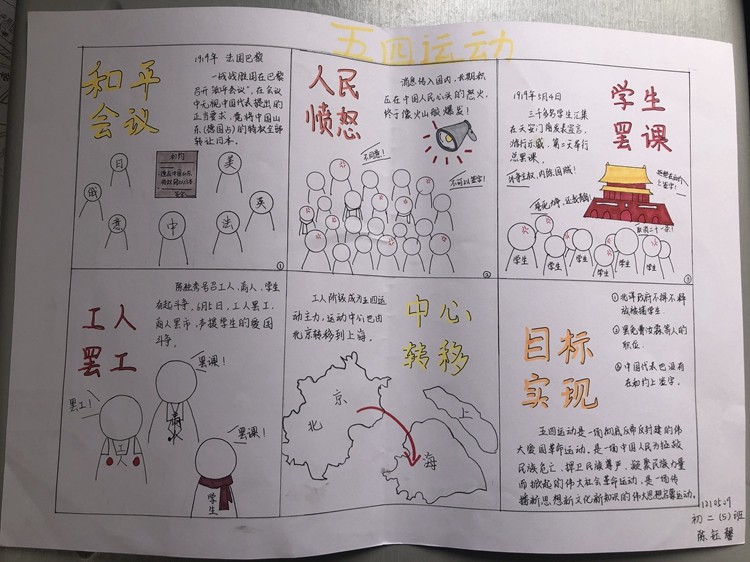 五四运动
和平
会议
1919年 法国巴黎
一战战胜国在巴黎
召开“和平会议”，在会议
中无视中国代表提出的
正当要求，竟将中国山
东(德国占)的特权全部
转让日本。
日
美
俄
英
意
中
法
①
人民
愤怒
消息传入国内，长期积
压在中国人民心头的怒火，
终于像火山般爆发！
不同意！
不可以签字！
②
学生
罢课
1919年5月4日
三千多名学生汇集
在天安门前发表宣言，
游行示威，第二天举行
总罢课。
外争主权，内除国贼！
拒绝在和约
上签字！
誓死力争，还我青岛！
取消二十一条！
学生
学生
学生
学生
学生
③
工人
罢工
陈独秀号召工人、商人、学生
6月5日，工人罢工，
商人罢市，支援学生的爱国
斗争。
罢课！
罢工！
商人
工人
罢课！
学生
中心
转移
工人阶级成为五四运
动主力，运动中心也由
北京转移到上海。
北
京
上
海
目标
实现
①北洋政府不得不释
放被捕学生。
②罢免曹汝霖等人的
职位。
③中国代表也没有
在和约上签字。
五四运动是一场彻底反帝反封建的伟
大爱国革命运动。是一场中国人民为拯救
民族危亡、捍卫民族尊严，凝聚民族力量
而掀起的伟大社会革命运动，是一场传
播新思想新文化新知识的伟大思想启蒙运动。
1210509
初二（5）班
陈钰馨